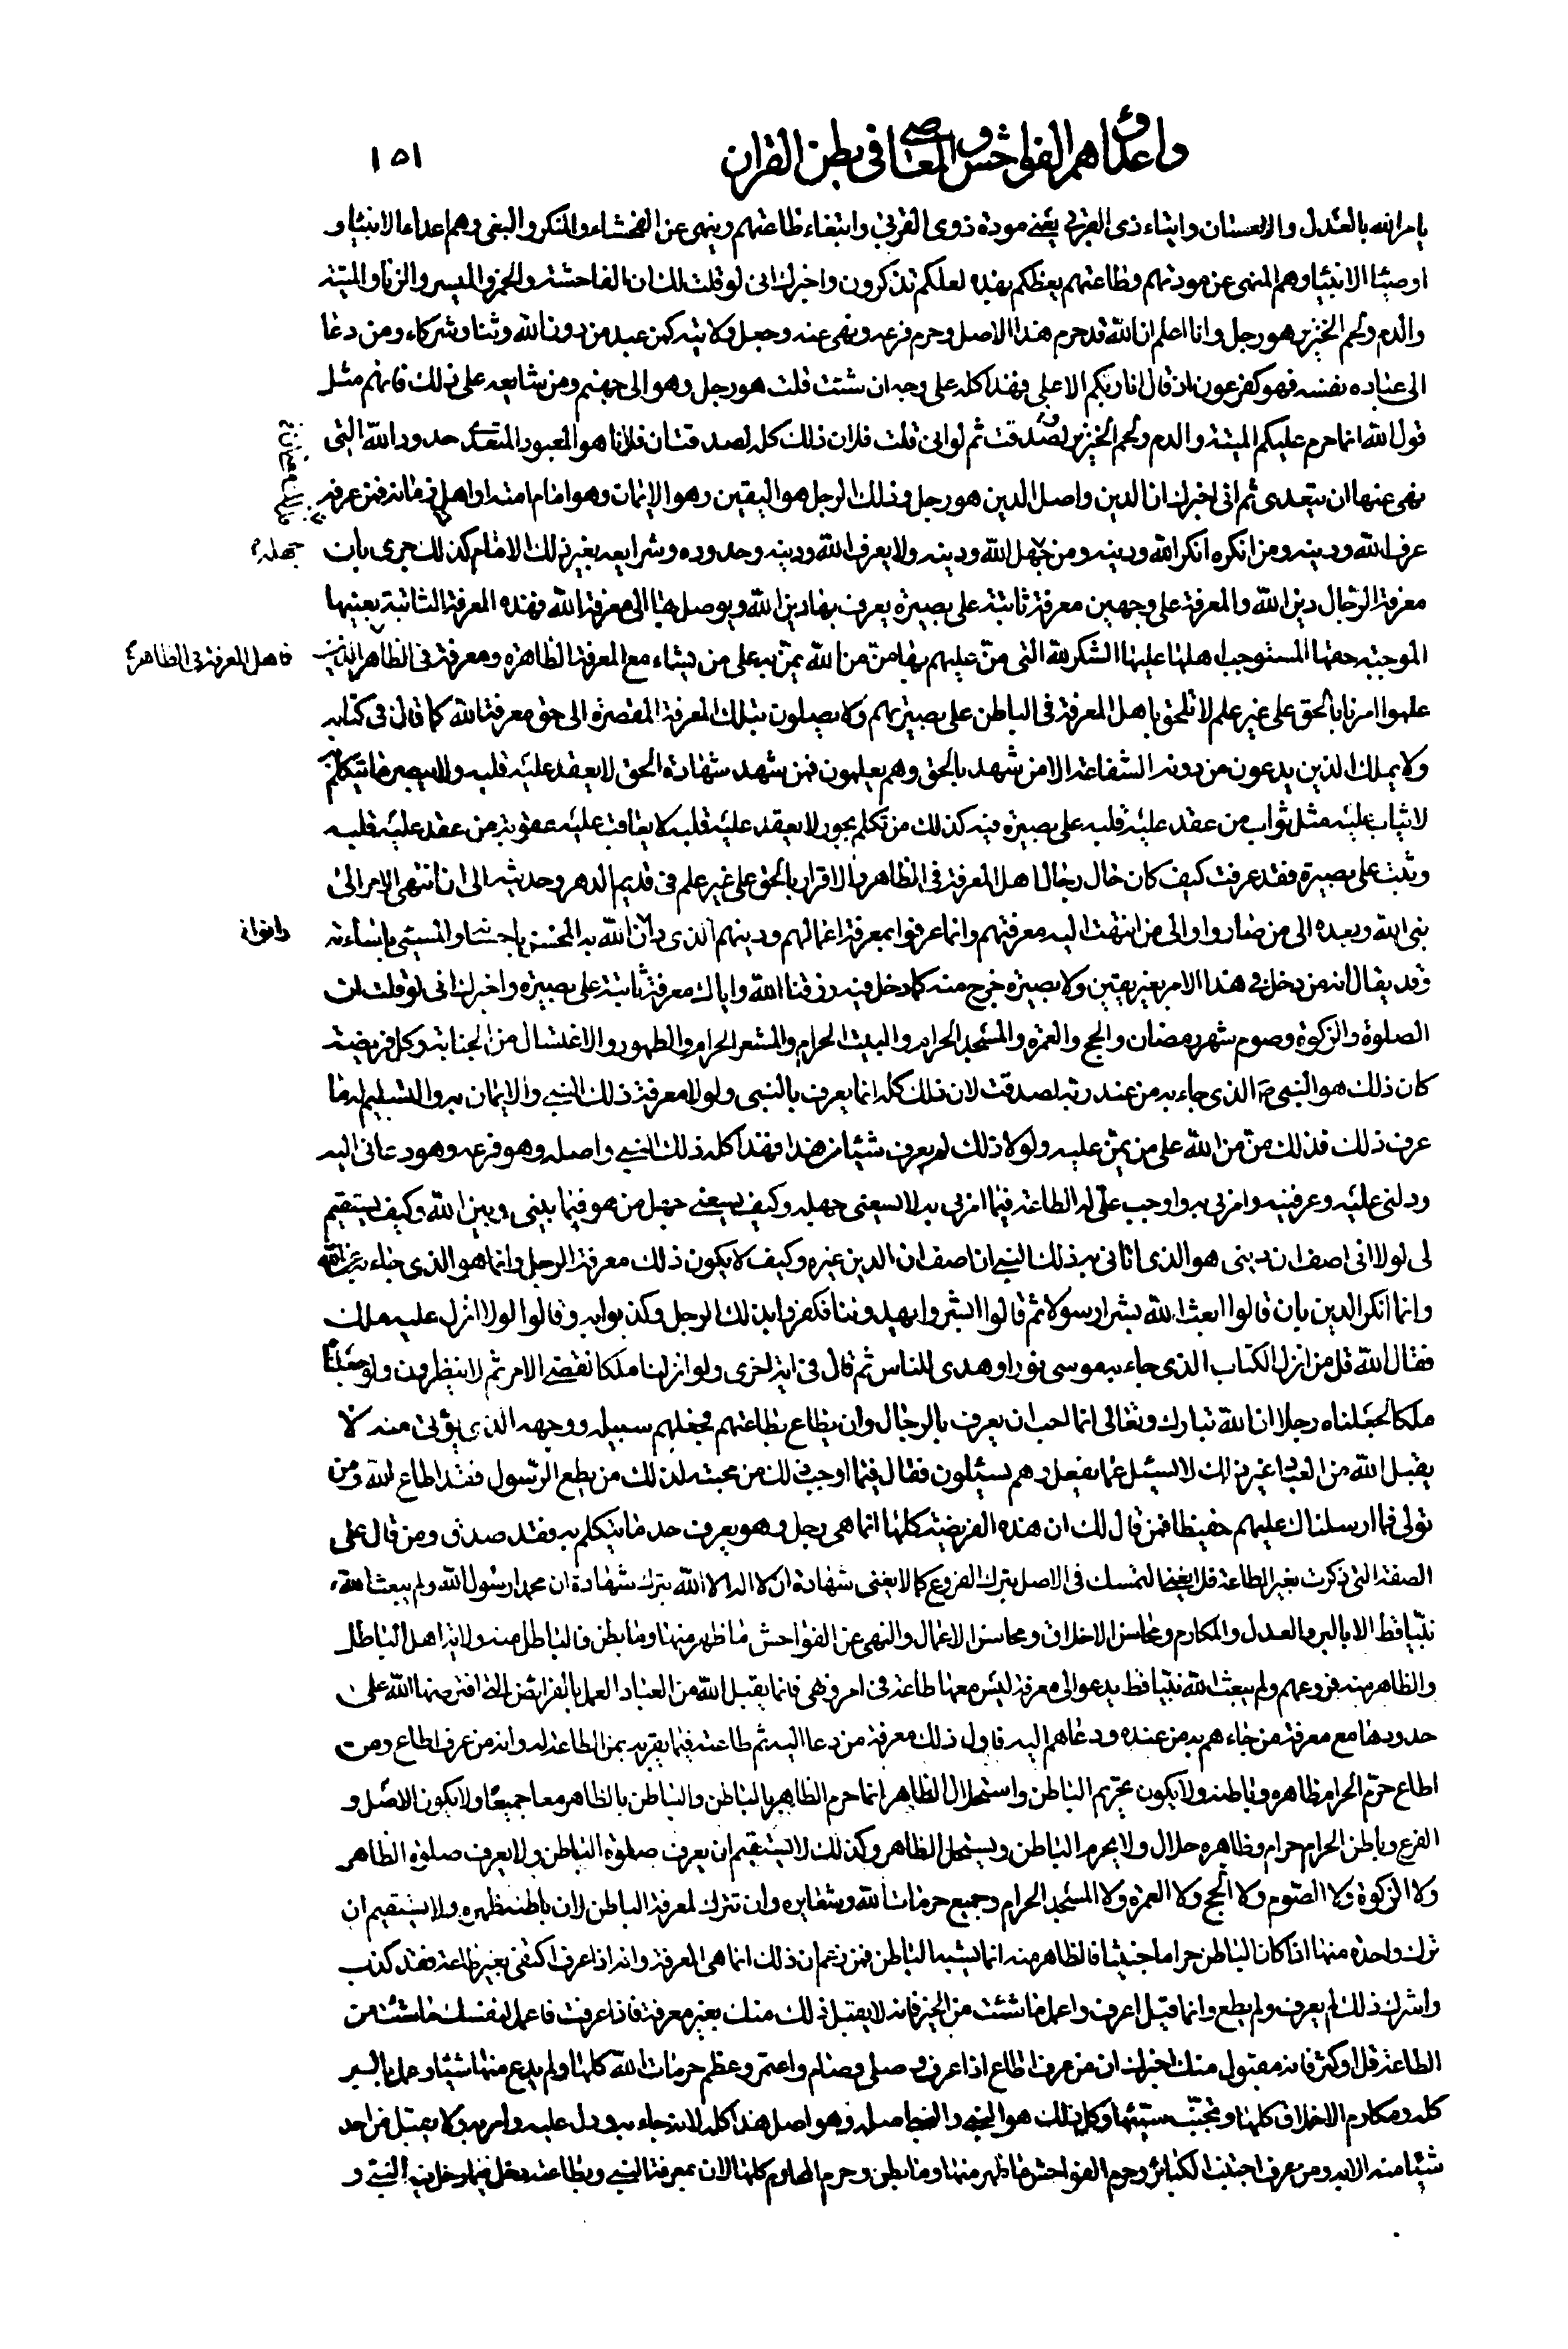 واعداؤهم الفواحش والمعاصي في بطن القران ١٥١
يامر الله بالعدل والاحسان وايتاء ذي القربى يعني مودة ذوي القربى وابتغاء طاعتهم وينهى عن الفحشاء والمنكر والبغي وهم اعداء الانبياء و
اوصياء الانبياء وهم المنهي عن مودتهم وطاعتهم يعظكم بهذه لعلكم تذكرون واخبرك اني لو قلت لك ان الفاحشة والخمر والميسر والزنا والميتة
والدم ولحم الخنزير هو رجل وانا اعلم ان الله قد حرم هذا الاصل وحرم فرعه ونهى عنه وجعل ولايته كمن عبد من دون الله وثنا وشركاء ومن دعا
الى عبادة نفسه فهو كفرعون اذ قال انا ربكم الاعلى فهذا كله على وجه ان شئت قلت هو رجل وهو الى جهنم ومن شايعه على ذلك فانهم مثل
قول الله انما حرم عليكم الميتة والدم ولحم الخنزير وصدقت ثم لو اني قلت فلان ذلك كله لصدقت ان فلانا هو المعبود المتعدي حدود الله التي
نهى عنها ان يتعدى ثم اني اخبرك ان الدين واصل الدين هو رجل وذلك الرجل هو اليقين وهو الايمان وهو امام امته او اهل زمانه فمن عرفه
عرف الله ودينه ومن انكره انكر الله ودينه ومن جهل الله ودينه ولا يعرف الله ودينه وحدوده وشرايعه بغير ذلك الامام كذلك جرى بان
جهله
معرفة الرجال دين الله والمعرفة على وجهين معرفة ثابتة على بصيرة يعرف بها دين الله ويوصل بها الى معرفة الله فهذه المعرفة الثابتة بعينها
الموجبة حقها المستوجب اهلها عليها الشكر لله التي من عليهم بها من من الله يمن به على من يشاء مع المعرفة الظاهرة ومعرفة في الظاهر الذين
فاهل المعرفة في الظاهر
علموا امرنا بالحق على غير علم لا تلحق باهل المعرفة في الباطن على بصيرتهم ولا يصلون بتلك المعرفة المقصرة الى حق معرفة الله كما قال في كتابه
ولا يملك الذين يدعون من دونه الشفاعة الا من شهد بالحق وهم يعلمون فمن شهد شهادة الحق لا يعقد عليه قلبه ولا يبصر ما يتكلم به
لا يثاب عليه مثل ثواب من عقد عليه قلبه على بصيرة فيه كذلك من تكلم بجور لا يعقد عليه قلبه لا يعاقب عليه عقوبة من عقد عليه قلبه
وثبت على بصيرة فقد عرفت كيف كان حال رجال اهل المعرفة في الظاهر والاقرار بالحق على غير علم في قديم الدهر وحديثه الى ان انتهى الامر الى
نبي الله وبعده الى من صاروا والى من انتهت اليه معرفتهم وانما عرفوا بمعرفة اعمالهم ودينهم الذي دان الله به المحسن باحسانه والمسيئ باسائته
وقد يقال انه من دخل في هذا الامر بغير يقين ولا بصيرة خرج منه كما دخل فيه رزقنا الله واياك معرفة ثابتة على بصيرة واخبرك اني لو قلت ان
الصلوة والزكوة وصوم شهر رمضان والحج والعمرة والمسجد الحرام والبيت الحرام والمشعر الحرام والطهور والاغتسال من الجنابة وكل فريضة
كان ذلك هو النبي ص الذي جاء به من عند ربه لصدقت لان ذلك كله انما يعرف بالنبي ولولا معرفة ذلك النبي والايمان به والتسليم له ما
عرف ذلك فذلك من من الله على من يمن عليه ولولا ذلك لم يعرف شيئا من هذا فهذا كله ذلك النبي واصله وهو فرعه وهو دعاني اليه
ودلني عليه وعرفنيه وامرني به واوجب علي له الطاعة فيما امرني به لا يسعني جهله وكيف يسعني جهل من هو فيما بيني وبين الله وكيف يستقيم
لي لولا اني اصف ان ديني هو الذي اتاني به ذلك النبي ان اصف ان الدين غيره وكيف لا يكون ذلك معرفة الرجل وانما هو الذي جاء به عن الله
وانما انكر الدين بان قالوا ابعث الله بشرا رسولا ثم قالوا ابشر يهدوننا فكفروا بذلك الرجل وكذبوا به وقالوا لولا انزل عليه ملك
فقال الله قل من انزل الكتاب الذي جاء به موسى نورا وهدى للناس ثم قال في اية اخرى ولو انزلنا ملكا لقضي الامر ثم لا ينظرون ولو جعلناه
ملكا لجعلناه رجلا ان الله تبارك وتعالى انما احب ان يعرف بالرجال وان يطاع بطاعتهم فجعلهم سبيله ووجهه الذي يؤتى منه لا
يقبل الله من العباد غير ذلك لا يسئل عما يفعل وهم يسئلون فقال فيما اوجب ذلك من محبته لذلك من يطع الرسول فقد اطاع الله ومن
تولى فما ارسلناك عليهم حفيظا فمن قال لك ان هذه الفريضة كلها انما هي رجل وهو يعرف حد ما يتكلم به فقد صدق ومن قال على
الصفة التي ذكرت بغير الطاعة فلا يغني التمسك في الاصل بترك الفروع كما لا يغني شهادة ان لا اله الا الله بترك شهادة ان محمدا رسول الله ولم يبعث الله
نبيا قط الا بالبر والعدل والمكارم ومحاسن الاخلاق ومحاسن الاعمال والنهي عن الفواحش ما ظهر منها وما بطن فالباطل منه ولاية اهل الباطل
والظاهر منه فروعهم ولم يبعث الله نبيا قط يدعو الى معرفة ليس معها طاعة في امر ونهي فانما يقبل الله من العباد العمل بالفرائض التي افترضها الله على
حدودها مع معرفة من جاءهم به من عنده ودعاهم اليه فاول ذلك معرفة من دعا اليه ثم طاعته فيما يقربه بمن الطاعة له وانه من عرف اطاع ومن
اطاع حرم الحرام ظاهره وباطنه ولا يكون تحريم الباطن واستحلال الظاهر انما حرم الظاهر بالباطن والباطن بالظاهر معا جميعا ولا يكون الاصل و
الفرع وباطن الحرام حرام وظاهره حلال ولا يحرم الباطن ويستحل الظاهر وكذلك لا يستقيم ان يعرف صلوة الباطن ولا يعرف صلوة الظاهر
ولا الزكوة ولا الصوم ولا الحج ولا العمرة ولا المسجد الحرام وجميع حرمات الله وشعايره وان تترك لمعرفة الباطن لان باطنه ظهره ولا يستقيم ان
ترك واحدة منها اذا كان الباطن حراما خبيثا فالظاهر منه انما يشبه الباطن فمن زعم ان ذلك انما هي المعرفة وانه اذا عرف اكتفى بغير طاعة فقد كذب
واشرك ذلك لم يعرف ولم يطع وانما قيل اعرف واعمل ما شئت من الخير فانه لا يقبل ذلك منك بغير معرفة فاذا عرفت فاعمل لنفسك ما شئت من
الطاعة قل او كثر فانه مقبول منك اخبرك ان من عرف اطاع اذا عرف وصلى وصام واعتمر وعظم حرمات الله كلها ولم يدع منها شيئا وعمل بالبر
كله ومكارم الاخلاق كلها وتجنب سيئها وكل ذلك هو النبي والنبي اصله وهو اصل هذا كله لانه جاء به ودل عليه وامر به ولا يقبل من احد
شيئا منه الا به ومن عرف اجتنب الكبائر وحرم الفواحش ما ظهر منها وما بطن وحرم المحارم كلها لان بمعرفة النبي وبطاعته دخل فيما دخل فيه النبي و